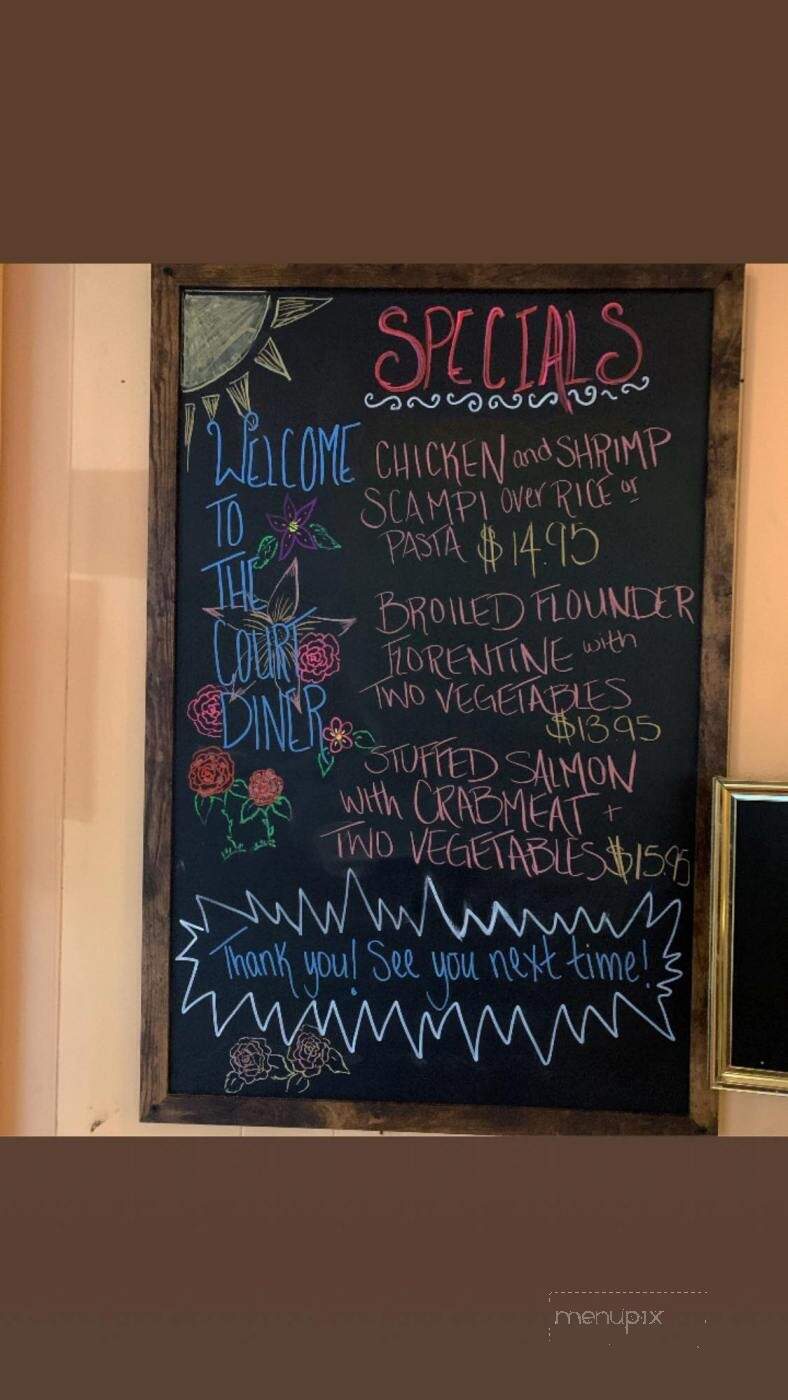 SPECIALS
WELCOME
TO
THE
COURT
DINER
CHICKEN and SHRIMP
SCAMPI over RICE or
PASTA $14.95
BROILED FLOUNDER
FLORENTINE with
TWO VEGETABLES
$13.95
STUFFED SALMON
with CRABMEAT +
TWO VEGETABLES $15.95
Thank you! See you next time!
menupix